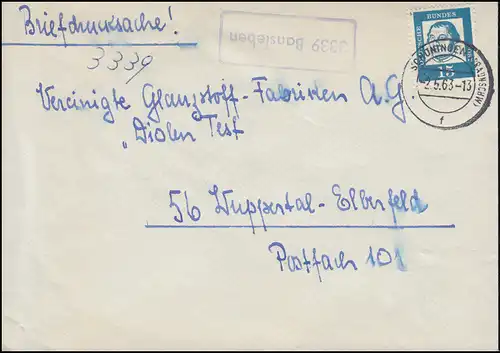 Briefdrucksache!
3339
3339 Bansleben
DEUTSCHE BUNDES
15
SCHÖNINGEN (BRAUNSCHW)
2.5.63-13
f
Vereinigte Glanzstoff-Fabriken A.G
"Diolen Test
56 Wuppertal-Elberfeld
Postfach 101